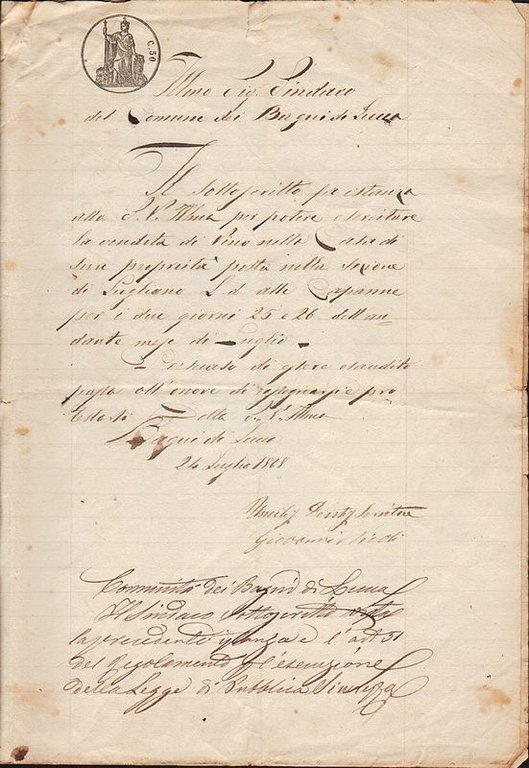 C. 50
Illmo Sig. Sindaco
del Comune dei Bagni di Lucca
Il sottoscritto fa istanza
alla S. V. Illma per potere esercitare
la vendita di Vino nella Casa di
sua proprietà posta nella sezione
di Lugliano L. d. alle Capanne
per i due giorni 25 e 26 dell'an-
dante mese di Luglio.
Persuaso di essere esaudito
passa all'onore di segnarsi e pro
testarsi Della S. V. Illma
Bagni di Lucca
24 Luglio 1868
Umilis Devotis Servitore
Giovanni
Comunità dei Bagni di Lucca
Il Sindaco sottoscritto vista
la precedente istanza e l'art 31
del Regolamento p l'esecuzione
della Legge di Pubblica Sicurezza